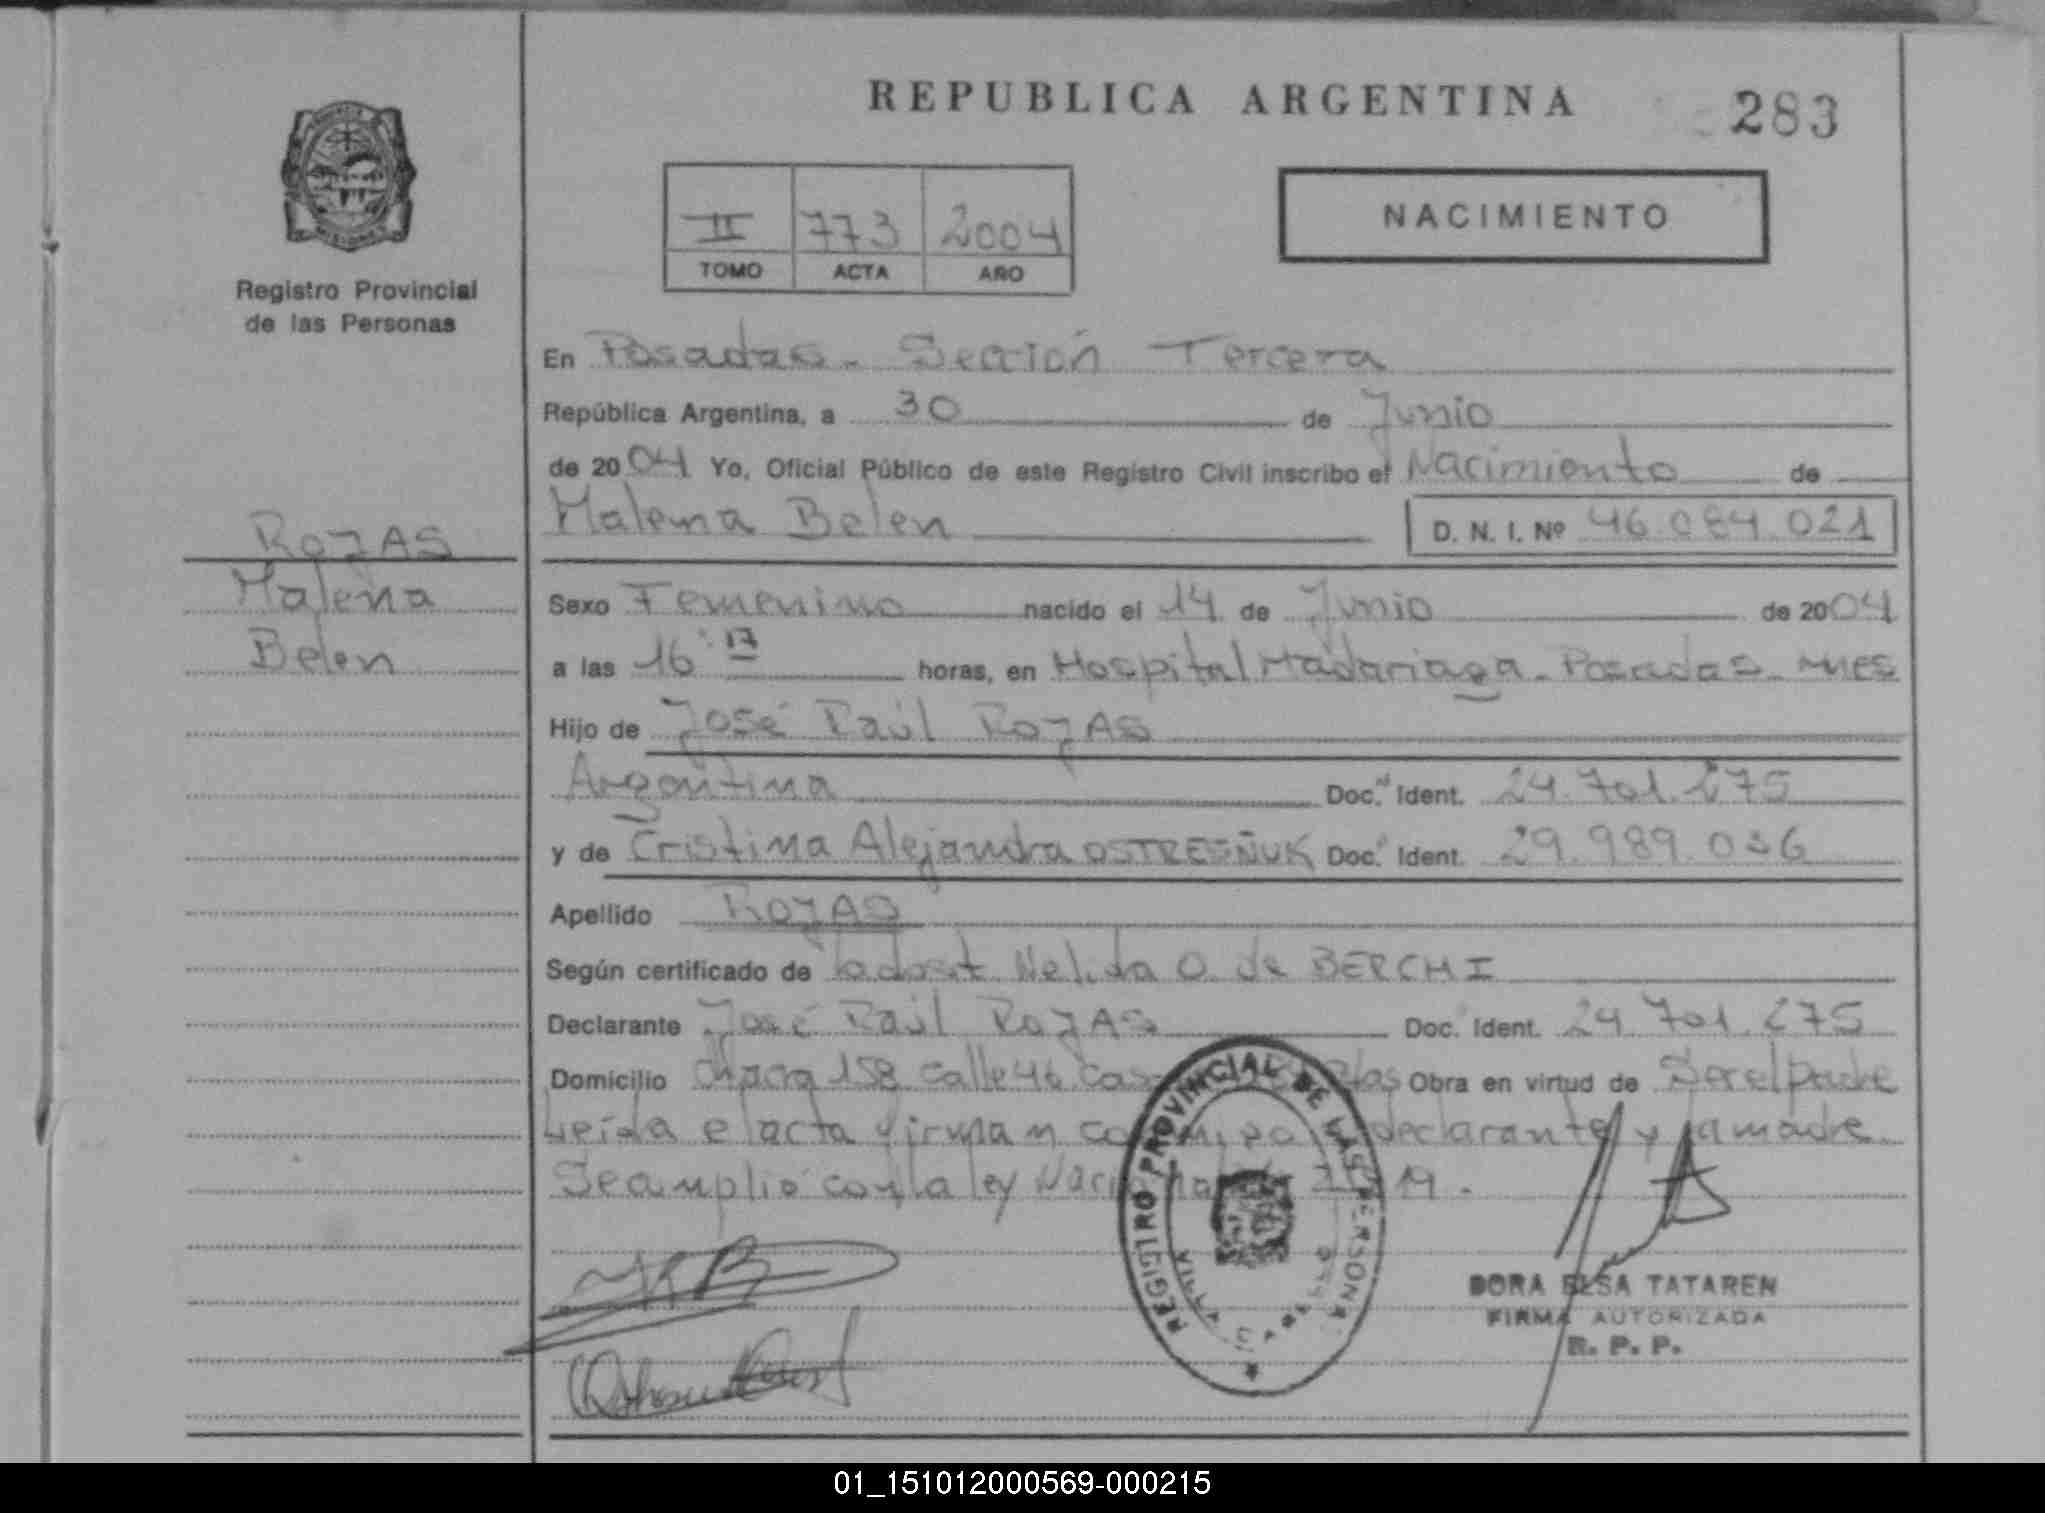 REPUBLICA ARGENTINA
283
MISIONES
Registro Provincial
de las Personas
II 773 2004
TOMO ACTA AÑO
NACIMIENTO
En Posadas - Sección Tercera
República Argentina, a 30 de Junio
de 2004 Yo, Oficial Público de este Registro Civil inscribo el Nacimiento de
Malena Belen D. N. I. Nº 46.084.021
ROJAS
Malena
Belen
Sexo Femenino nacido el 14 de Junio de 2004
a las 16:17 horas, en Hospital Madariaga - Posadas - Mnes
Hijo de José Raúl ROJAS
Argentina Doc. Ident. 24.701.275
y de Cristina Alejandra OSTRESÑUK Doc. Ident. 29.989.036
Apellido ROJAS
Según certificado de Nelida O. de BERCHI
Declarante José Raúl ROJAS Doc. Ident. 24.701.275
Domicilio Chacra 158 calle 46 Obra en virtud de Ser el padre
Leída el acta firman declarante y la madre.
Se amplió con la ley
REGISTRO PROVINCIAL DE LAS PERSONAS
DORA ELSA TATAREN
FIRMA AUTORIZADA
R. P. P.
01_151012000569-000215